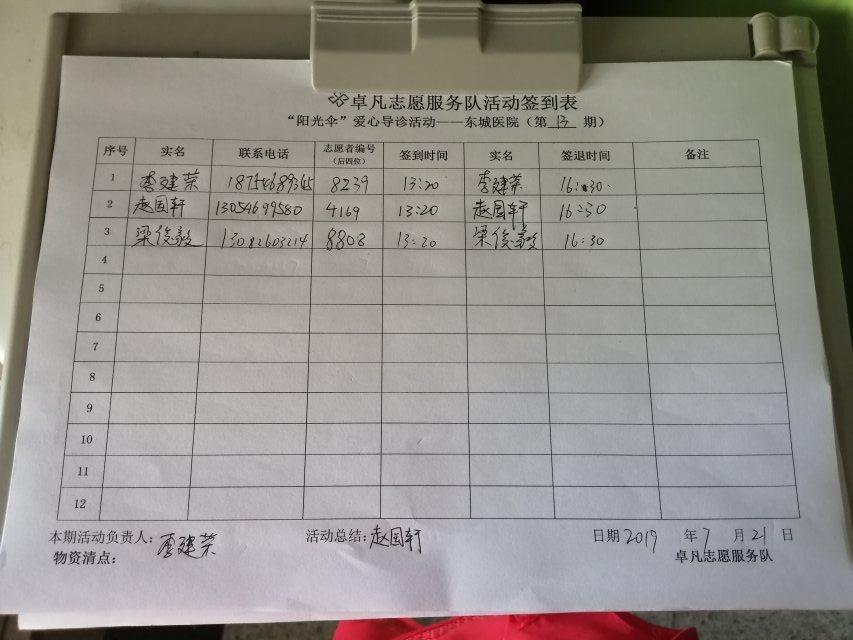 卓凡志愿服务队活动签到表
“阳光伞”爱心导诊活动——东城医院（第 13 期）
序号 实名 联系电话 志愿者编号（后四位） 签到时间 实名 签退时间 备注
1 李建荣 18754689345 8239 13:20 李建荣 16:30
2 赵国轩 13054699580 4169 13:20 赵国轩 16:30
3 梁俊毅 13082603214 8808 13:20 梁俊毅 16:30
4
5
6
7
8
9
10
11
12
本期活动负责人：李建荣 活动总结：赵国轩 日期 2019 年 7 月 21 日
物资清点： 卓凡志愿服务队